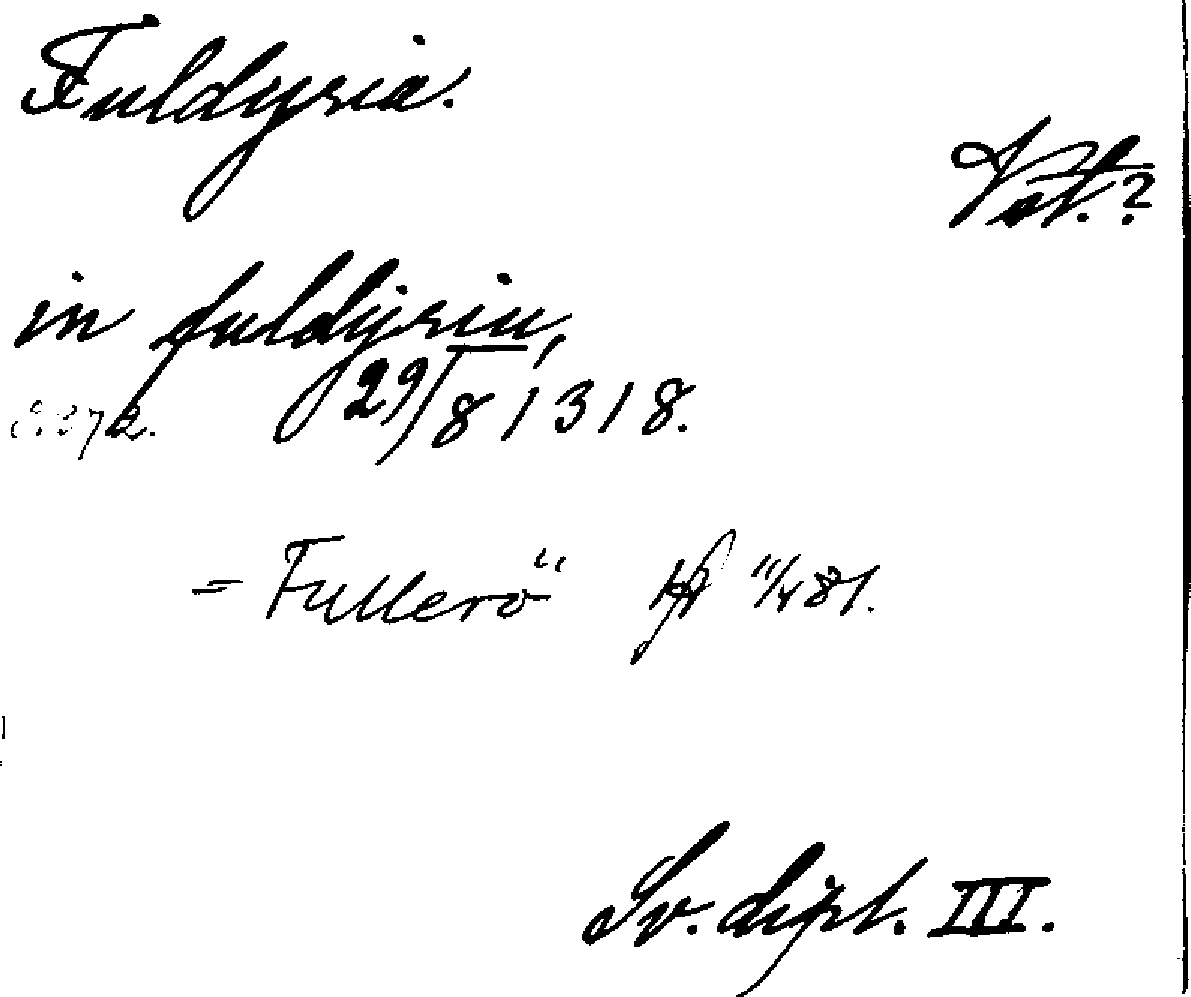 Fuldyria.
Vät.?
in fuldyriu,
29/8 1318.
= Fullerö 11/4 81.
Sv. dipl. III.